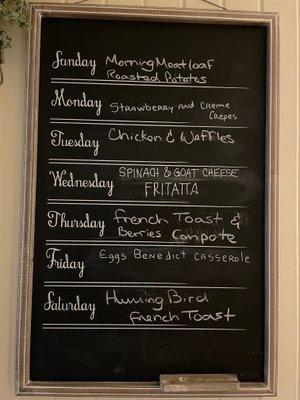 Sunday Morning Meatloaf
Roasted Potatoes
Monday Strawberry and Creme
Crepes
Tuesday Chicken & Waffles
Wednesday SPINACH & GOAT CHEESE
FRITATTA
Thursday French Toast &
Berries Compote
Friday Eggs Benedict Casserole
Saturday Humming Bird
French Toast